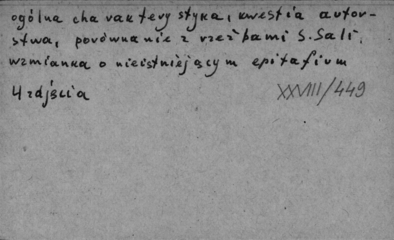 ogólna charakterystyka, kwestia autor-
stwa, porównanie z rzeźbami S. Sali.
wzmianka o nieistniejącym epitafium
4 zdjęcia XXVIII/449